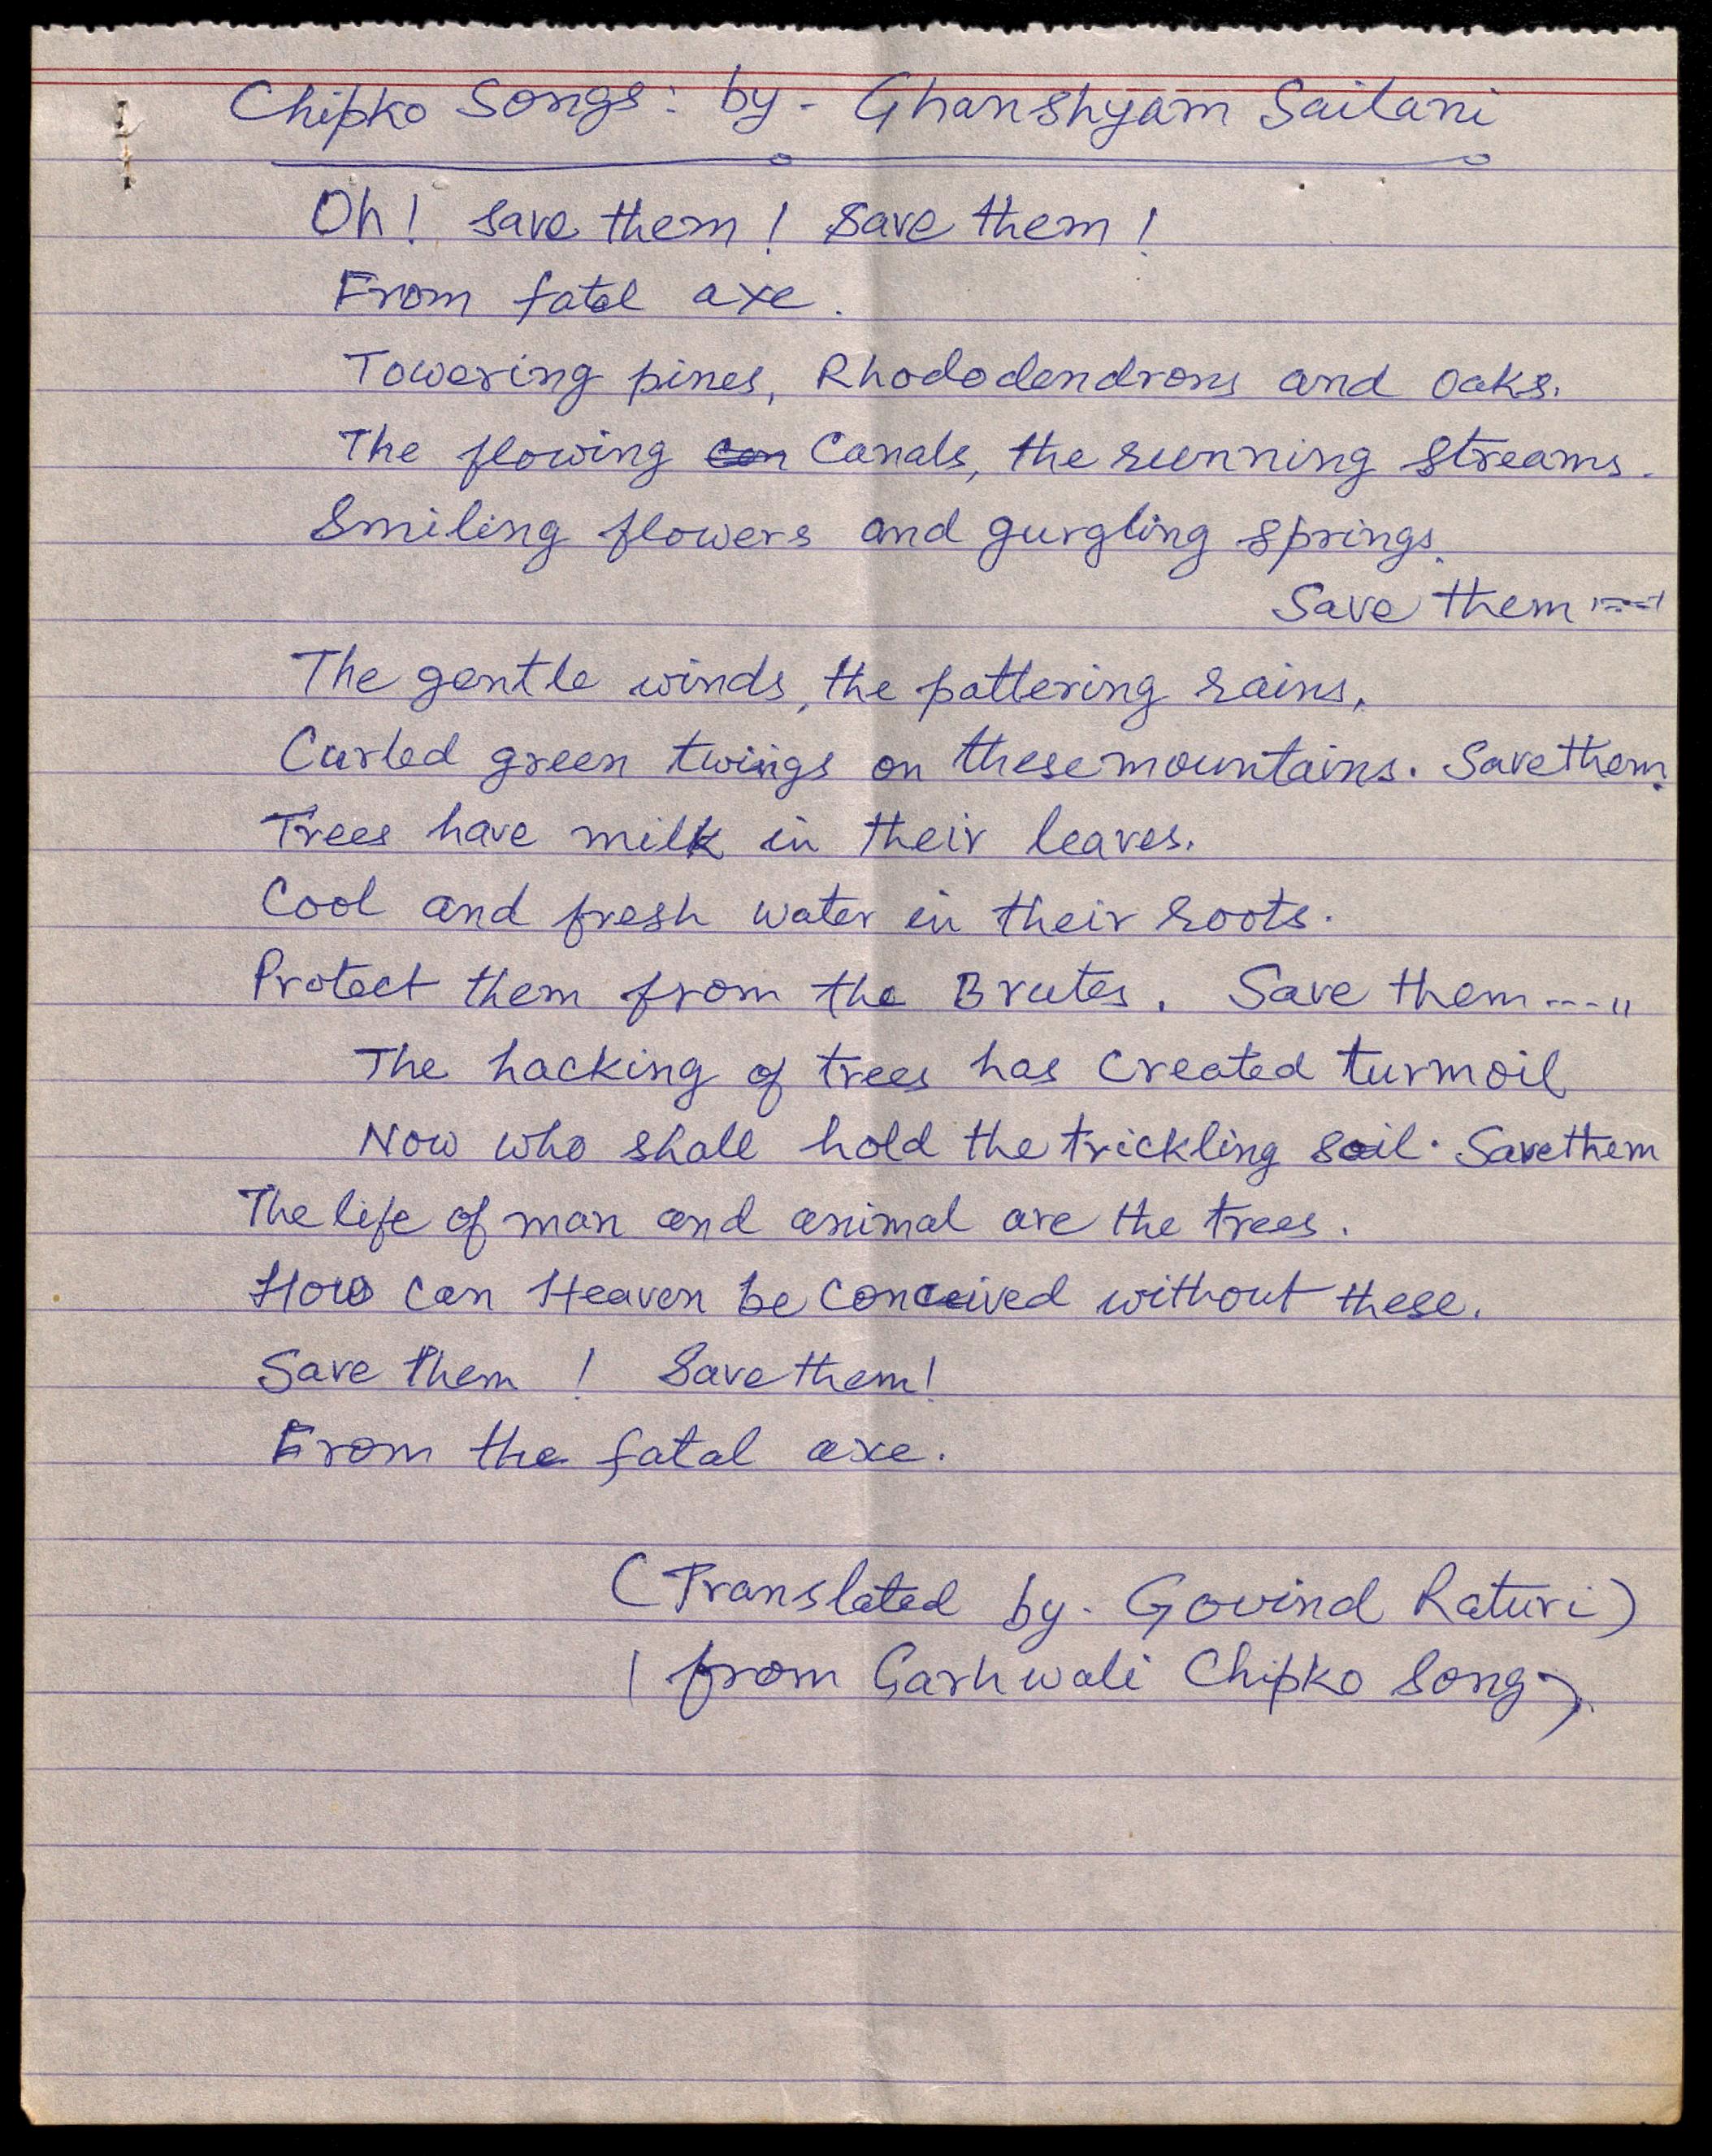 Chipko Songs: by - Ghanshyam Sailani
Oh! save them! Save them!
From fatal axe.
Towering pines, Rhododendrons and Oaks.
The flowing Canals, the running streams.
Smiling flowers and gurgling springs.
Save them ----
The gentle winds, the pattering rains,
Curled green twings on these mountains. Save them.
Trees have milk in their leaves.
Cool and fresh water in their roots.
Protect them from the Brutes. Save them ---"
The hacking of trees has created turmoil
Now who shall hold the trickling soil. Save them
The life of man and animal are the trees.
How can Heaven be conceived without these.
Save them! Save them!
From the fatal axe.
(Translated by - Govind Raturi)
( from Garhwali Chipko Song).